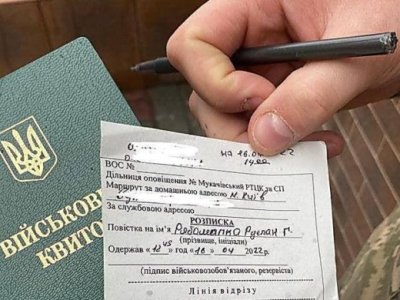 ВІЙСЬКОВ
КВИТО
на 16.04.22
14.00
ВОС №
Дільниця оповіщення № Мукачівський РТЦК та СП
Маршрут за домашньою адресою м. Київ
За службовою адресою
РОЗПИСКА
Повістка на ім'я Руслан Г.
(прізвище, ініціали)
Одержав «18 45» год «16» 04 2022 р.
(підпис військовозобов'язаного, резервіста)
Лінія відрізу